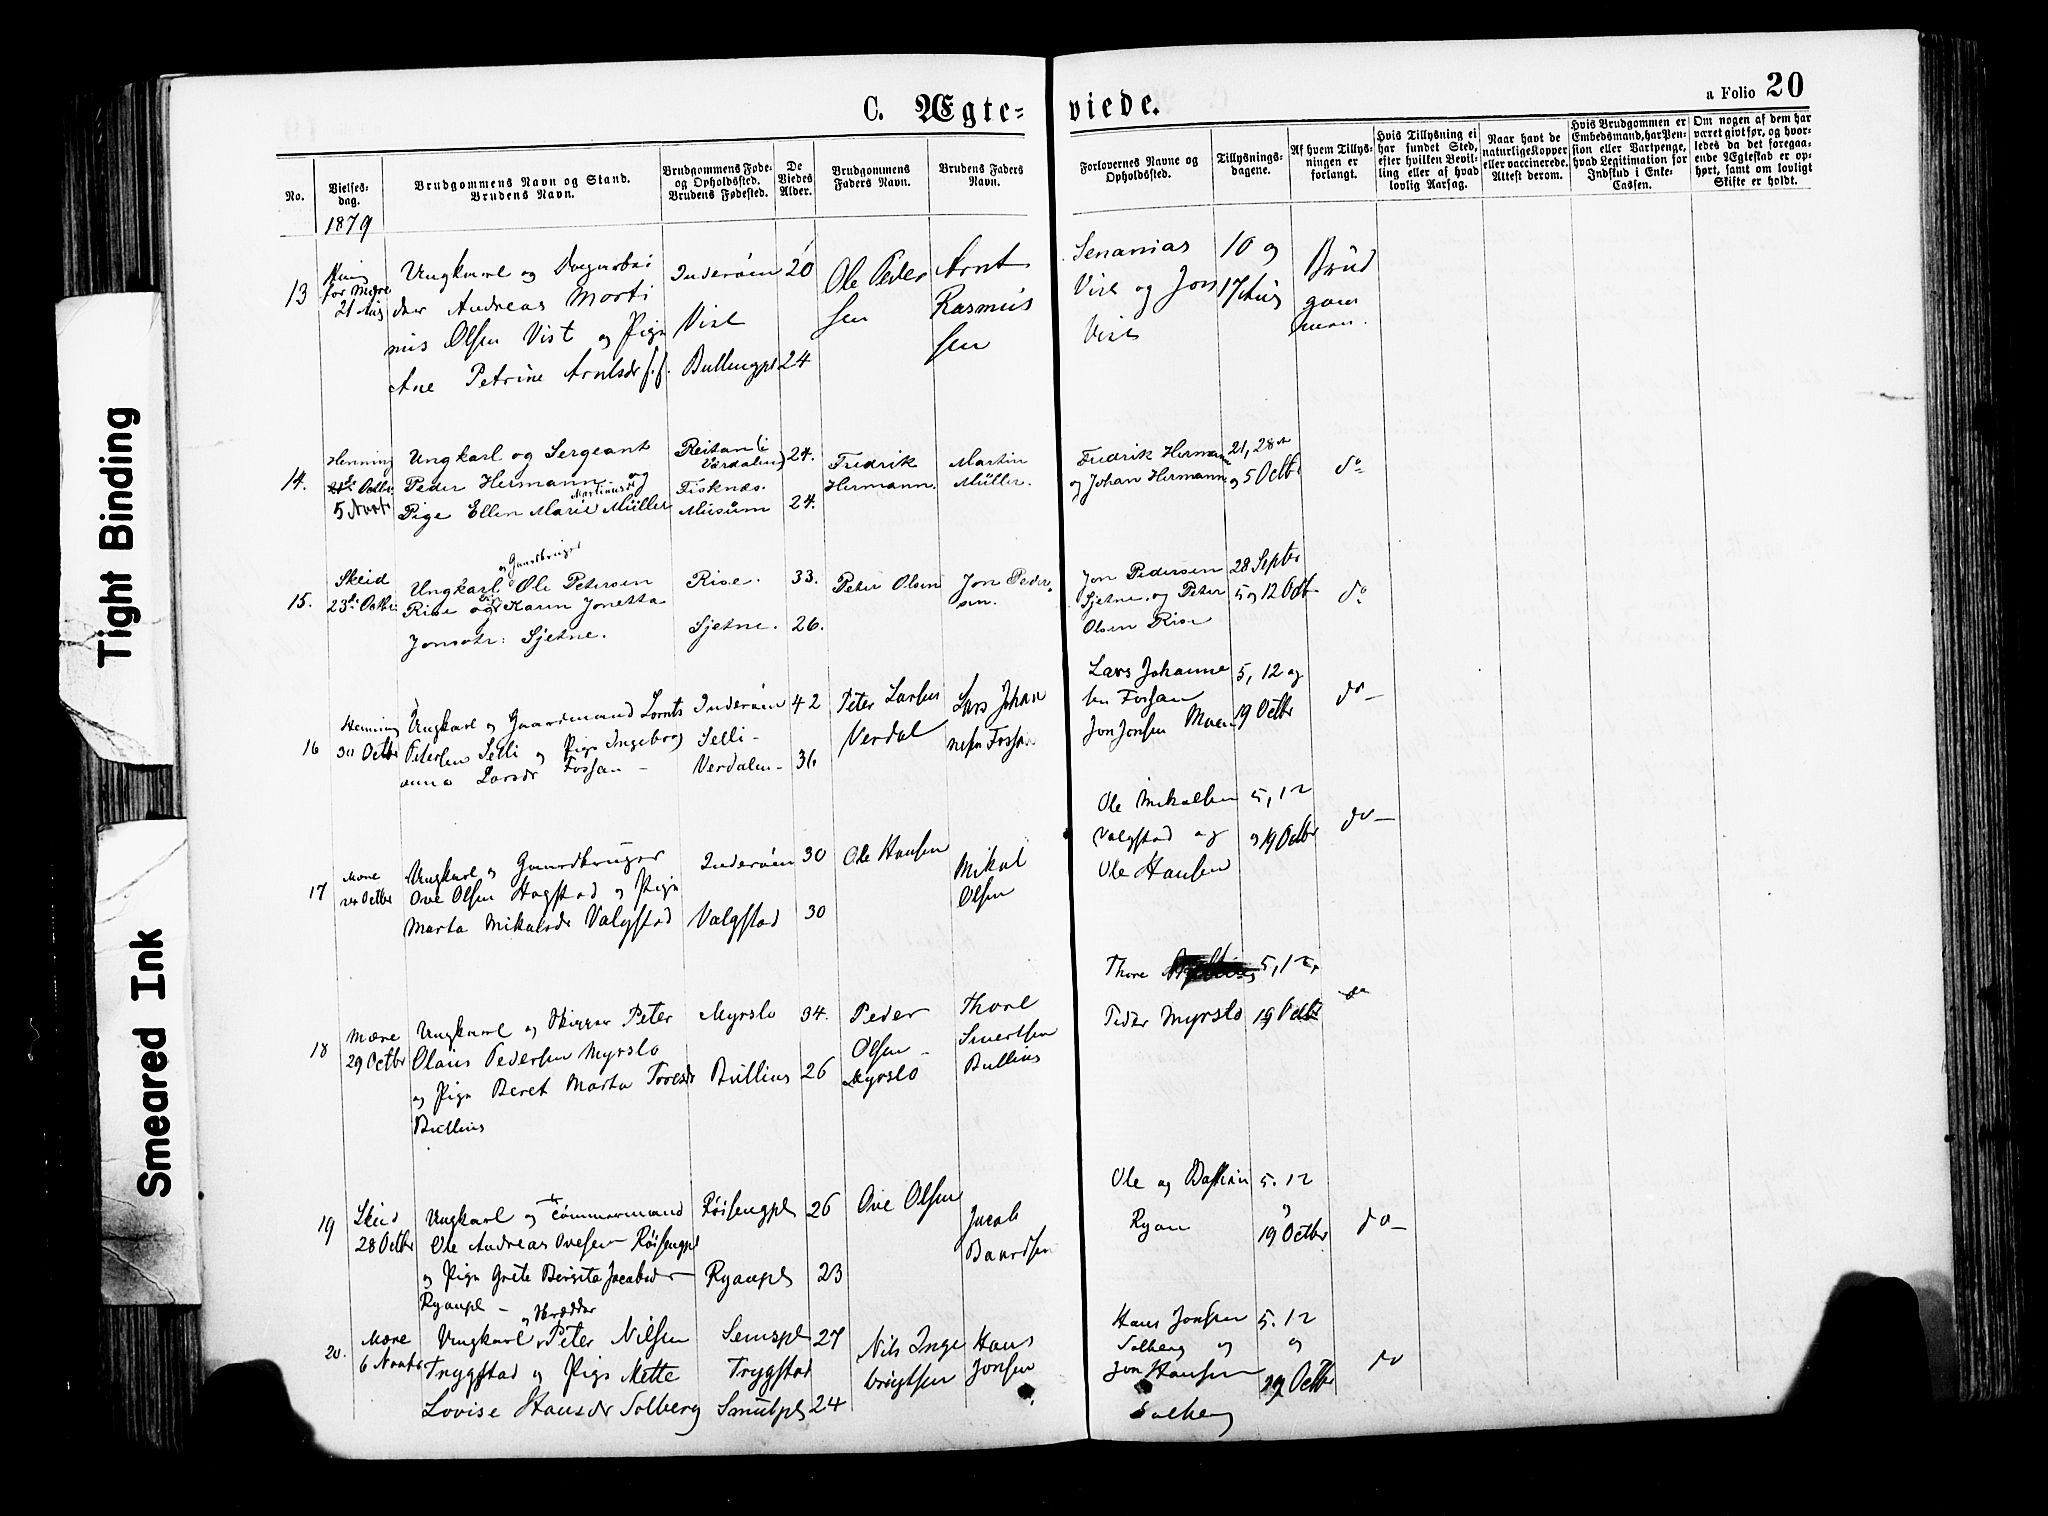 C. Ægte-
viede.
a Folio 20
No.
Vielses-
dag.
Brudgommens Navn og Stand.
Brudens Navn.
Brudgommens Føde-
og Opholdssted.
Brudens Fødested.
De
Viedes
Alder.
Brudgommens
Faders Navn.
Brudens Faders
Navn.
Forlovernes Navne og
Opholdssted.
Tillysnings-
dagene.
Af hvem Tillys-
ningen er
forlangt.
Hvis Tillysning ei
har fundet Sted,
efter hvilken Bevil-
ling eller af hvad
lovlig Aarsag.
Naar havt de
naturlige Kopper
eller vaccinerede.
Attest derom.
Hvis Brudgommen er
Embedsmand, har Pen-
sion eller Vartpenge,
hvad Legitimation for
Indskud i Enke-
Cassen.
Om nogen af dem har
været givt før, og hvor-
ledes da det foregaa-
ende Ægtestad er op-
hørt, samt om lovligt
Skifte er holdt.
1879
13
for Mære
21 Aug
Ungkarl og Dagarbei
der Andreas Morti
nus Olsen Vist og Pige
Ane Petrine Arntsdr f.f.
Inderøen
Vist
Bullengpl
20
24
Ole Peder
sen
Arnt
Rasmus
sen
Senanias
Vist og Jon
Vist
10 og
17 Aug
Brud
gom
men.
14.
Henning
5 Novbr
Ungkarl og Sergeant
Peder Hermann og
Martinusdr
Pige Ellen Marie Müller
Reitan (i
Værdalen)
Fisknæs.
Musum
24.
24.
Fredrik
Hermann.
Martin
Müller.
Fredrik Hermann
og Johan Hermann
21, 28de
og 5 Octbr
do
15.
Skeid
23de Octbr
og Gaardbruger
Ungkarl Ole Petersen
Rise og Pige Karen Jonetta
Jonsdtr: Sjetne.
Rise.
Sjetne.
33.
26.
Peter Olsen
Jon Peder
sen.
Jon Pedersen
Sjetne, og Peter
Olsen Rise
28 Septbr
5 og 12 Octbr
do
16
Henning
30 Octbr
Ungkarl og Gaardmand Lornts
Petersen Selli og Pige Ingeborg
anna Larsdr Fossan -
Inderøen
Selli -
Verdalen -
42
36
Peter Larsen
Verdal
Lars Johan
nesen Fossan
Lars Johanne
sen Fossan
Jon Jonsen Moen
5, 12 og
19 Octbr
do -
17
Mære
24 Octbr
Ungkarl og Gaardbruger
Ove Olsen Hagstad og Pige
Marta Mikalsdr Valgstad
Inderøen
Valgstad
30
30
Ole Hansen
Mikal
Olsen
Ole Mikalsen
Valgstad og
Ole Hansen
5, 12
og 19 Octbr
do -
18
Mære
29 Octbr
Ungkarl og Skigger Peter
Olaus Pedersen Myrslo
og Pige Beret Marta Toresdr
Bullius
Myrslo
Bullius
34.
26
Peder
Olsen -
Myrslo
Thore
Sivertsen
Bullius
Thore
Peder Myrslo
5, 12,
19 Octbr
do
19
Skeid
28 Octbr
Ungkarl og Tømmermand
Ole Andreas Ovesen Røisengpl
og Pige Grete Bergita Jacobsdr
Ryanpl -
Røisengpl
Ryanpl
26
23
Ove Olsen
Jacob
Baardsen
Ole og Bastian
Ryan
5. 12
19 Octbr
do -
20.
Mære
6 Novbr
og Skrædder
Ungkarl Peter Nilsen
Trygstad og Pige Mette
Lovise Hansdr Solberg
Semspl
Trygstad
Smulpl
27
24
Nils Inge
brigtsen
Hans
Jonsen
Hans Jonsen
Solberg og
Jon Hansen
Solberg
5. 12
og
19 Octbr
do
Tight Binding
Smeared Ink